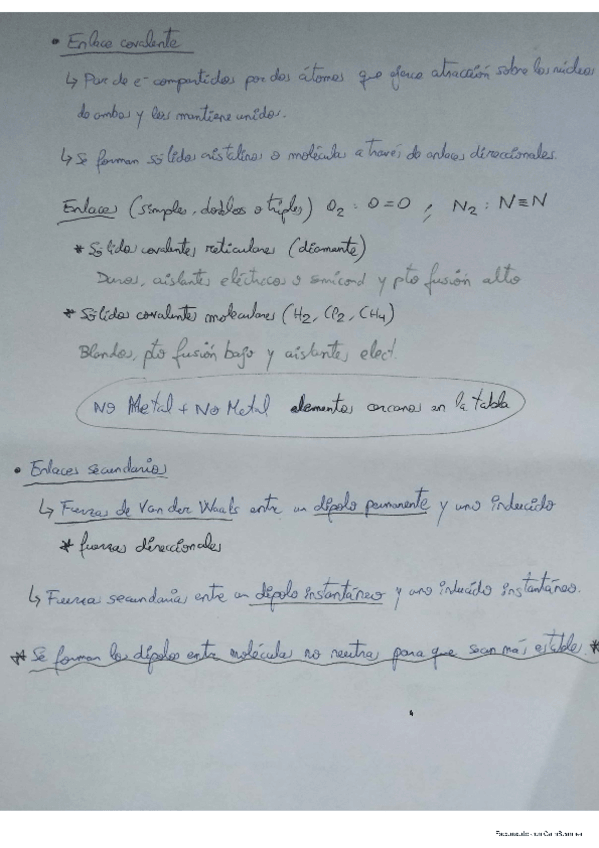 • Enlace covalente
↳ Par de e⁻ compartidos por dos átomos que ejerce atracción sobre los núcleos
de ambos y los mantiene unidos.
↳ Se forman sólidos cristalinos o moléculas a través de enlaces direccionales.
Enlaces (simples, dobles o triples) O2 : O=O ; N2 : N≡N
* Sólidos covalentes reticulares (diamante)
Duros, aislantes eléctricos o semicond y pto fusión alto
* Sólidos covalentes moleculares (H2, Cl2, CH4)
Blandos, pto fusión bajo y aislantes elect.
No Metal + No Metal elementos cercanos en la tabla
• Enlaces secundarios
↳ Fuerzas de Van der Waals entre un dipolo permanente y uno inducido
* fuerzas direccionales
↳ Fuerza secundaria entre un dipolo instantáneo y uno inducido instantáneo.
* Se forman los dipolos entre moléculas no neutras para que sean más estables. *
Escaneado con CamScanner